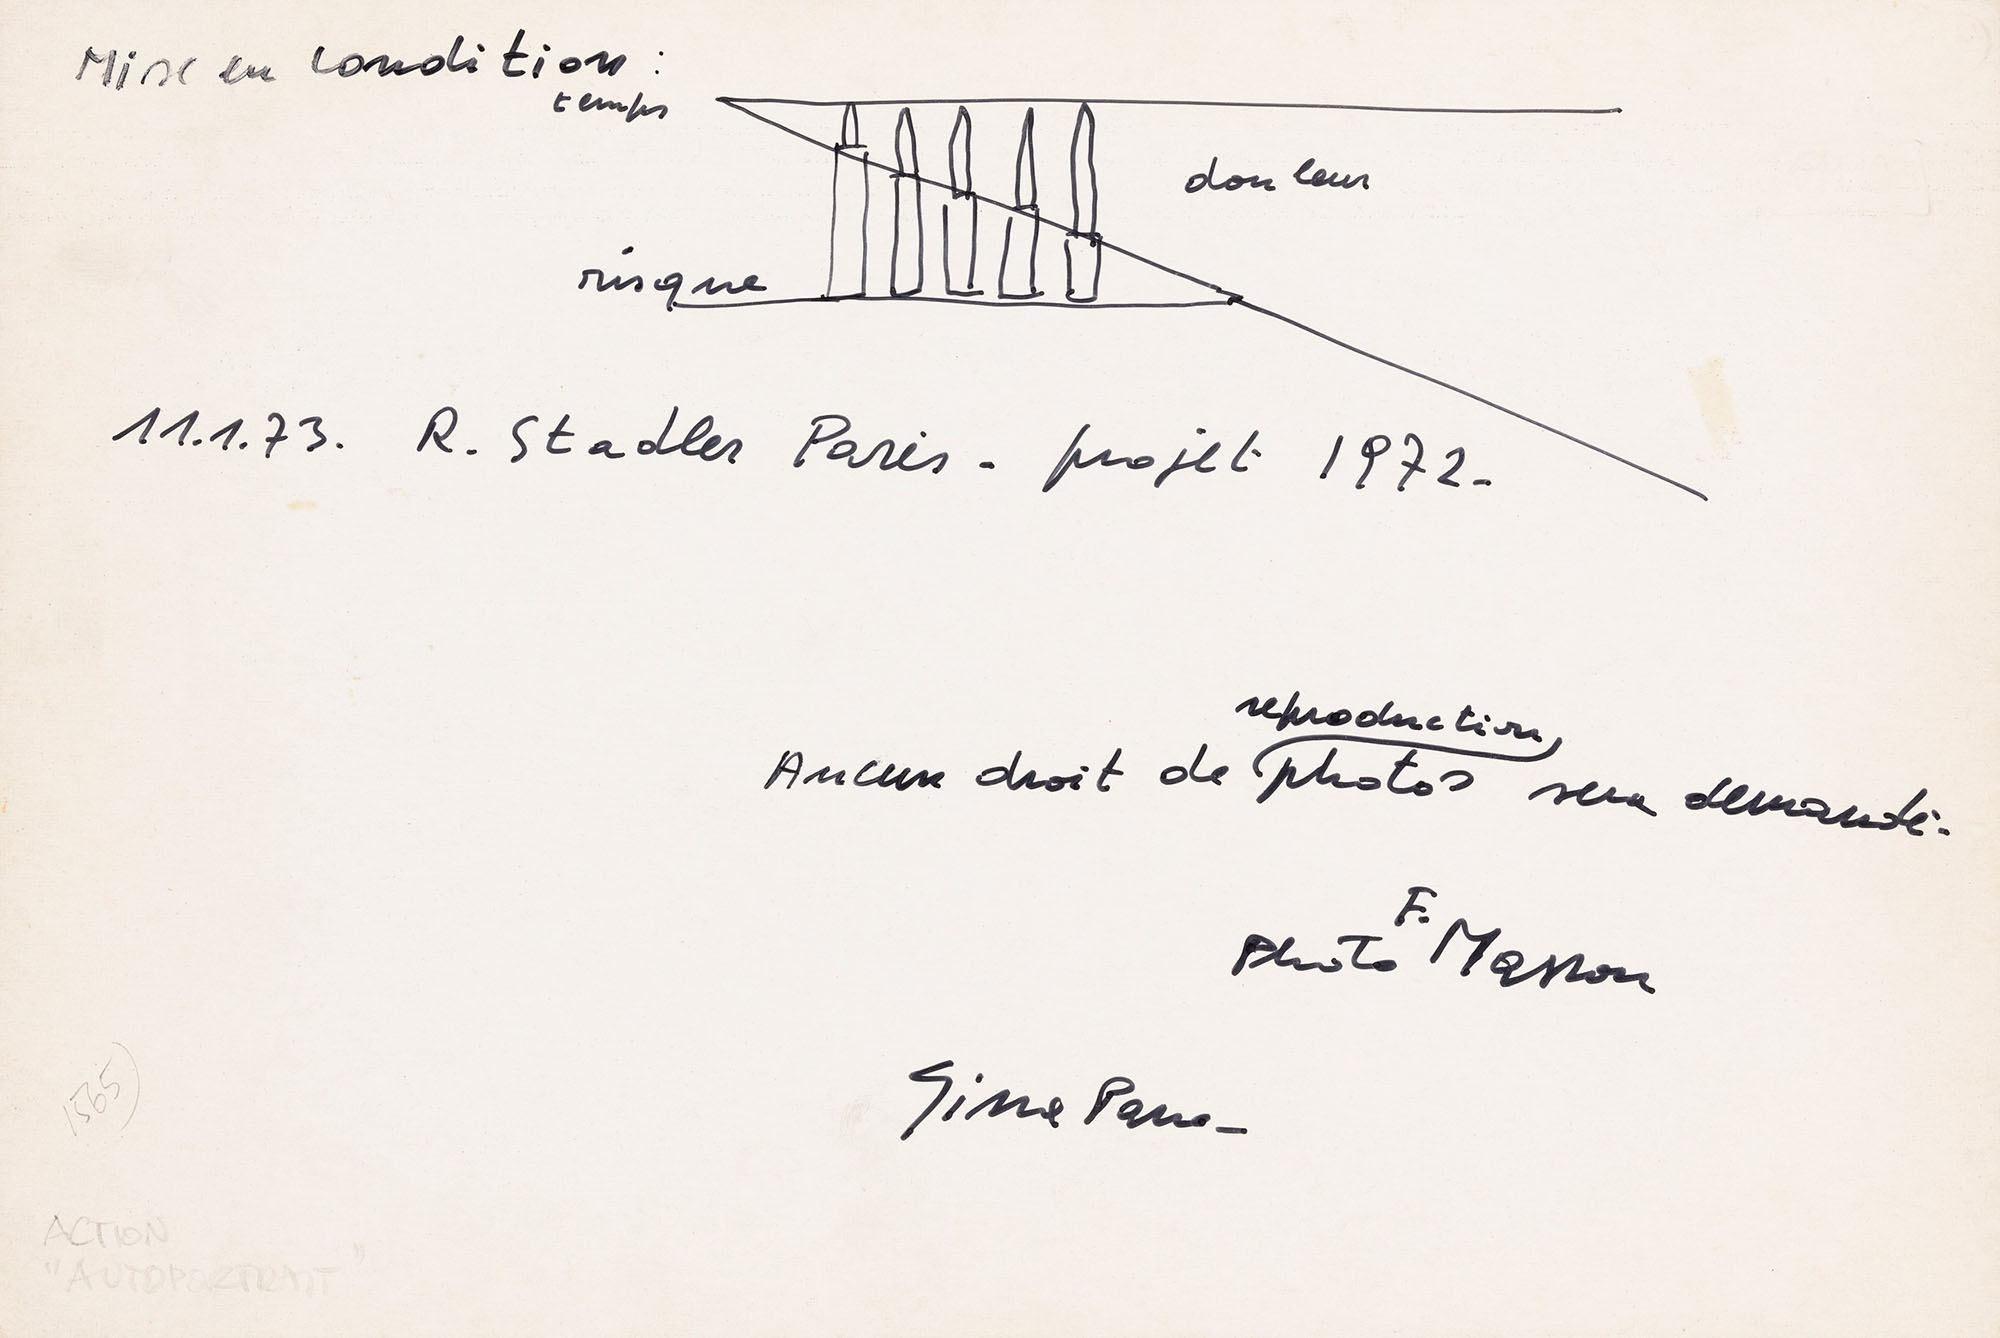 Mise en Condition :
temps
douleur
risque
11.1.73. R. Stadler Paris - projet 1972-
reproduction
Aucun droit de photos sera demandé.
Photo F. Masson
Gina Pane -
1565
ACTION
"AUTOPORTRAIT"